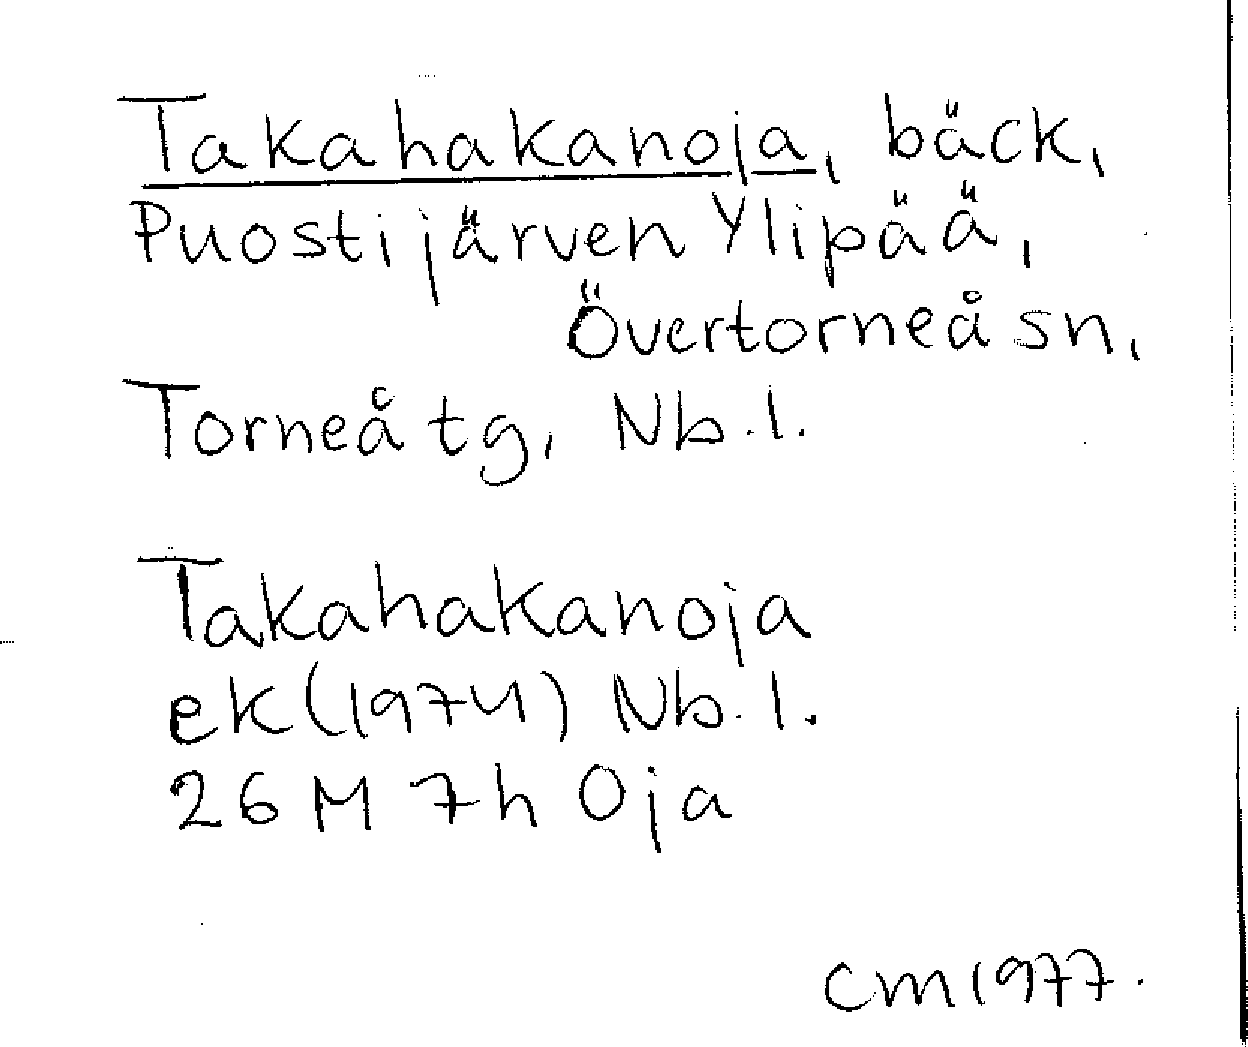 Takahakanoja, bäck,
Puostijärven Ylipää,
Övertorneå sn,
Torneå tg, Nb.l.
Takahakanoja
ek (1974) Nb.l.
26 M 7h Oja
CM 1977.